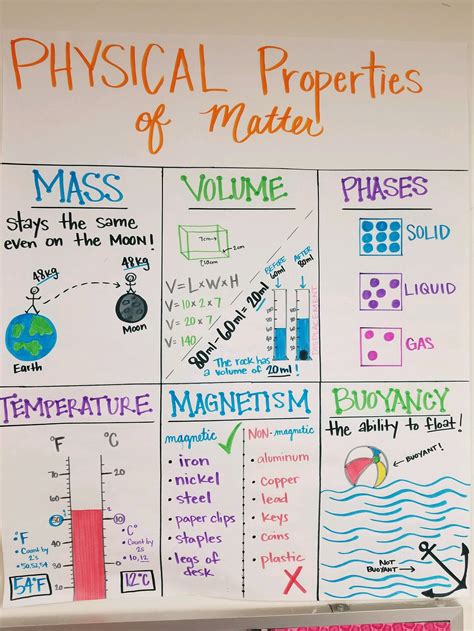 PHYSICAL Properties
of Matter
MASS
stays the same
even on the MOON!
48kg
48kg
Earth
Moon
VOLUME
7cm
2cm
10cm
V=LxWxH
V=10x2x7
V=20x7
V=140
BEFORE
60ml
AFTER
80ml
80ml-60ml=20ml
DISPLACEMENT
The rock has
a volume of 20ml!
PHASES
SOLID
LIQUID
GAS
TEMPERATURE
°F
°C
70
60
50
40
30
20
10
°F
• Count by 2's
• 50,52,54
54°F
°C
• Count by 2s
• 10,12
12°C
MAGNETISM
magnetic
• iron
• nickel
• steel
• paper clips
• staples
• legs of desk
NON-magnetic
• aluminum
• copper
• lead
• keys
• coins
• plastic
BUOYANCY
the ability to float!
BUOYANT!
NOT
BUOYANT